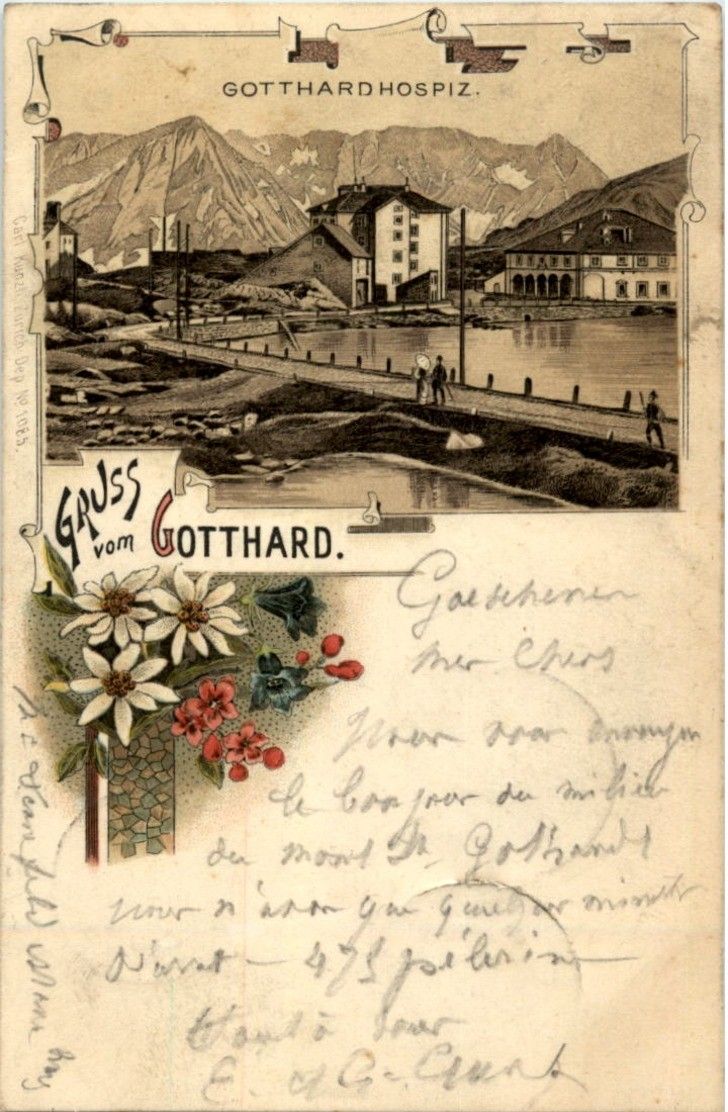 GOTTHARDHOSPIZ.
Carl Künzli Zürich Dep. No 1085.
GRUSS
vom GOTTHARD.
Goeschenen
mes Chers
Nous vous envoyons
le bonjour du milieu
du mont St. Gothardt
nous n'avons que quelques minutes
D'arret — 475 pélerins
Tout à vous
E. & G.